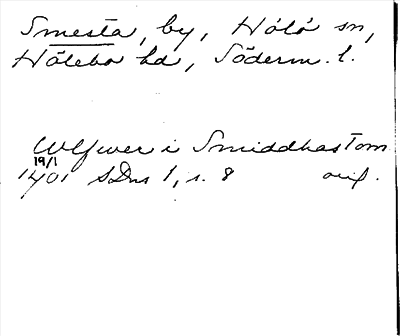 Smesta, by, Hölö sn,
Hölebo hd, Söderm. l.
Wlfwer i Smiddhastom
19/1
1401 SDns 1, s. 8 orig.